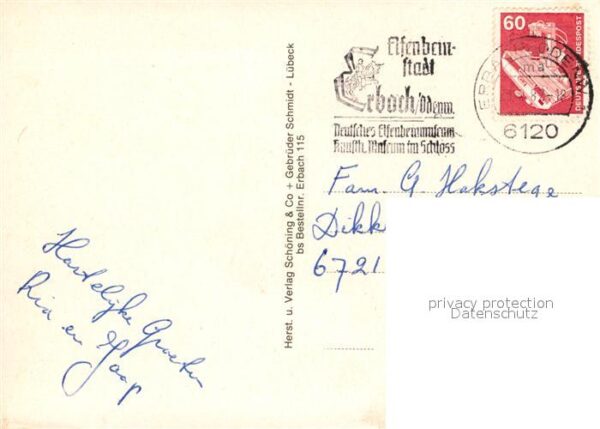 Elfenbein-
stadt
Erbach/Odenw.
Deutsches Elfenbeinmuseum
Kunstl. Museum im Schloss
60
DEUTSCHE BUNDESPOST
ERBACH, ODENW
6120
Fam. G. Hakstege
Dikk
6721
Herst. u. Verlag Schöning & Co + Gebrüder Schmidt - Lübeck
bs Bestellnr. Erbach 115
Hartelijke Groeten
Ria en Jaap
privacy protection
Datenschutz